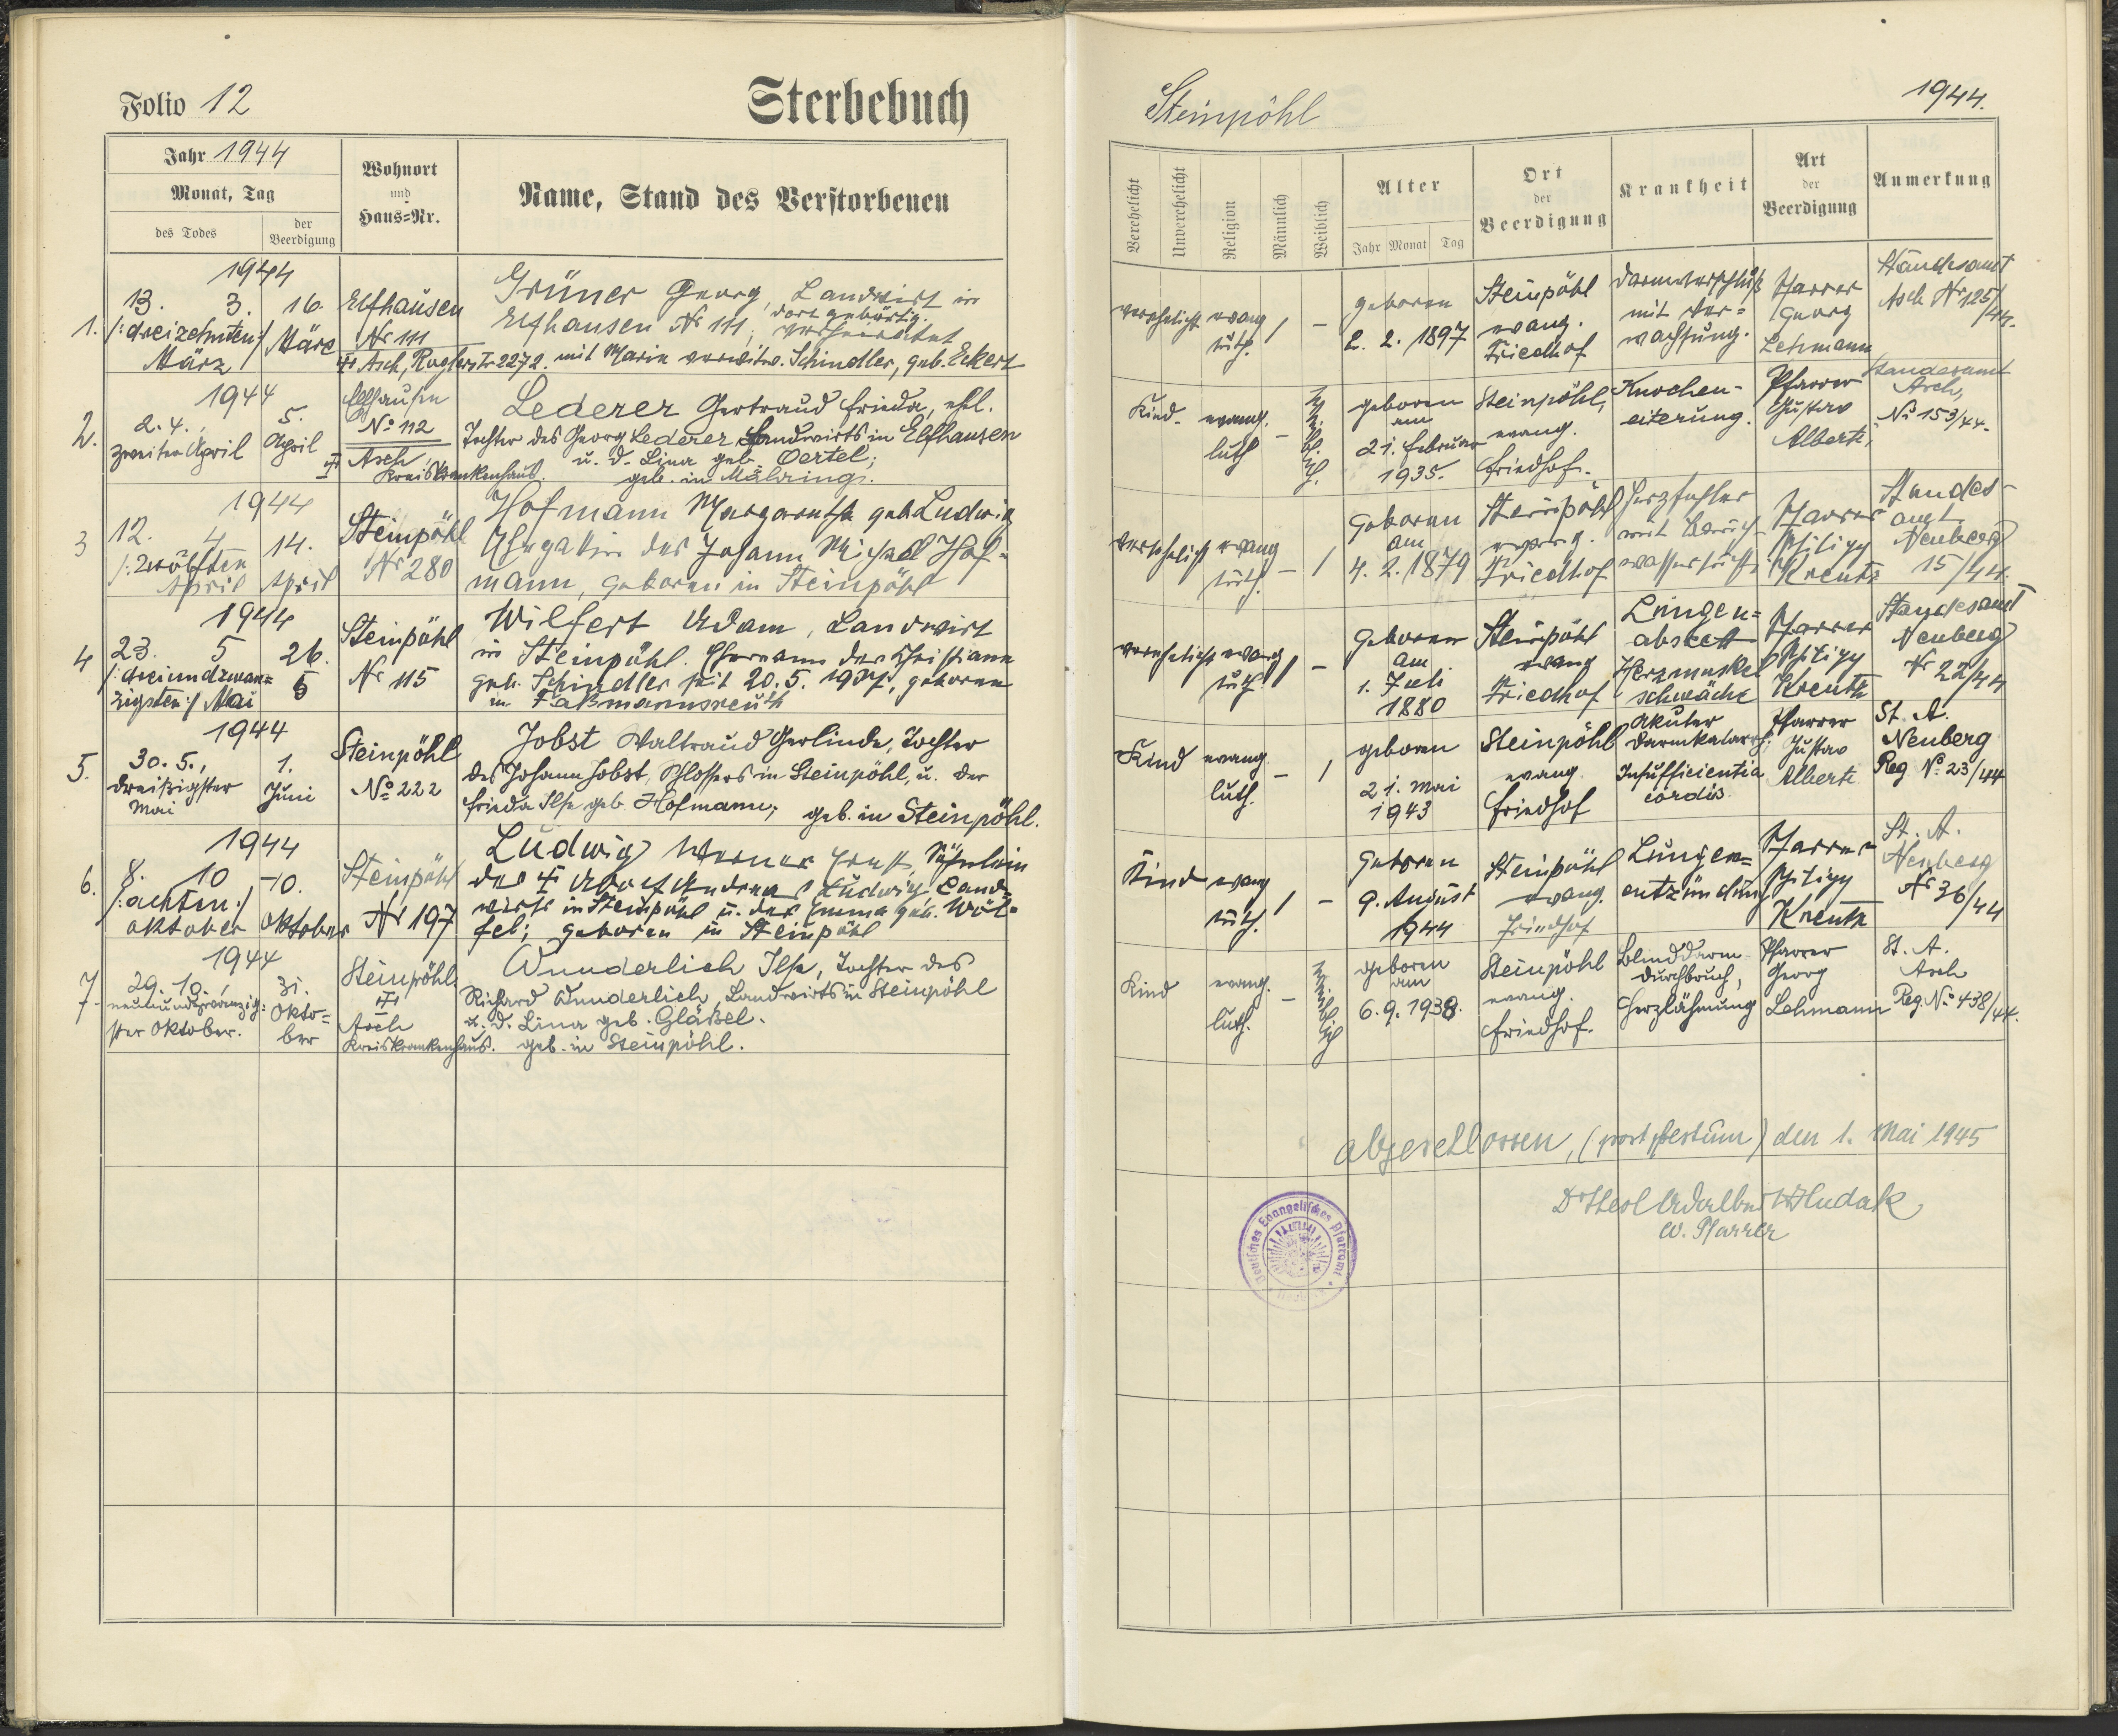 Folio 12
Sterbebuch
Jahr 1944
Monat, Tag
des Todes
der Beerdigung
Wohnort
und
Haus=Nr.
Name, Stand des Verstorbenen
1.
1944
13. 3.
/: dreizehnten :/
März
16.
März
Elfhausen
Nr 111
Asch, Roglerstr 2272.
Grüner Georg, Landwirt in
Elfhausen Nr 111, dort gebürtig.
verheiratet
mit Maria verwitw. Schindler, geb. Eckert
2.
1944
2. 4.,
zweiter April
5.
April
Elfhausen
No 112
Asch,
Kreiskrankenhaus.
Lederer Gertraud Frieda, ehl.
Tochter des Georg Lederer, Landwirts in Elfhausen
u. d. Lina geb. Oertel;
geb. in Mähring.
3
1944
12. 4
/: zwölften
April
14.
April
Steinpöhl
Nr 280
Hofmann Margareth geb. Ludwig
Ehegattin des Johann Michael Hof=
mann, geboren in Steinpöhl
4
1944
23. 5
/: dreiundzwan=
zigsten :/ Mai
26.
5
Steinpöhl
Nr 115
Wilfert Adam, Landwirt
in Steinpöhl. Ehemann der Christiane
geb. Schindler seit 20. 5. 1907, geboren
in Faßmannsreuth
5.
1944
30. 5.,
dreißigster
Mai
1.
Juni
Steinpöhl
No 222
Jobst Waltraud Gerlinde, Tochter
des Johann Jobst, Schlossers in Steinpöhl, u. der
Frieda Ilse geb. Hofmann; geb. in Steinpöhl.
6.
1944
8. 10
/: achten :/
Oktober
10.
Oktober
Steinpöhl
Nr 197
Ludwig Werner Ernst, Söhnlein
des Adolf Andreas Ludwig Land=
wirts in Steinpöhl u. der Emma geb. Wöl=
fel; geboren in Steinpöhl
7.
1944
29. 10.,
neunundzwanzig=
ster Oktober.
31.
Okto=
ber
Steinpöhl
Asch
Kreiskrankenhaus.
Wunderlich Ilse, Tochter des
Richard Wunderlich, Landwirts in Steinpöhl
u. d. Lina geb. Gläßel.
geb. in Steinpöhl.
Steinpöhl
1944.
Verehelicht
Unverehelicht
Religion
Männlich
Weiblich
Alter
Jahr Monat Tag
Ort
der
Beerdigung
Krankheit
Art
der
Beerdigung
Anmerkung
verehelicht evang
luth.
/ -
geboren
2. 2. 1897
Steinpöhl
evang.
Friedhof
Darmverschluß
mit Ver=
wachsung.
Pfarrer
Georg
Lehmann
Standesamt
Asch Nr 125/
44.
Kind. evang.
luth
-
geboren
am
21. Februar
1935.
Steinpöhl,
evang.
Friedhof.
Knochen-
eiterung.
Pfarrer
Gustav
Alberti,
Standesamt
Asch,
No 153/44.
verehelicht evang
luth.
- /
Geboren
am
4. 2. 1879
Steinpöhl
evang.
Friedhof
Herzfehler
mit Bauch-
wassersucht
Pfarrer
Philipp
Kreutz
Standes-
amt
Neuberg
15/44.
verehelicht evang
luth.
/ -
Geboren
am
1. Juli
1880
Steinpöhl
evang
Friedhof
Lungen=
abszeß
Herzmuskel
schwäche
Pfarrer
Philipp
Kreutz
Standesamt
Neuberg
Nr 22/44
Kind evang
luth.
- /
geboren
21. Mai
1943
Steinpöhl
evang.
Friedhof
Akuter
Darmkatarrh;
Insufficientia
cordis.
Pfarrer
Gustav
Alberti
St. A.
Neuberg
Reg No. 23/44
Kind evang
luth.
/ -
Geboren
9. August
1944
Steinpöhl
evang.
Friedhof
Lungen=
entzündung
Pfarrer
Philipp
Kreutz
St. A.
Neuberg
Nr 36/44
Kind evang.
luth.
-
geboren
am
6. 9. 1938.
Steinpöhl
evang.
Friedhof.
Blinddarm
durchbruch,
Herzlähmung
Pfarrer
Georg
Lehmann
St. A.
Asch
Reg. No. 438/44.
abgeschlossen, (post festum) den 1. Mai 1945
Dr theol Adalbert Hudak
ev. Pfarrer
Deutsches Evangelisches Pfarramt